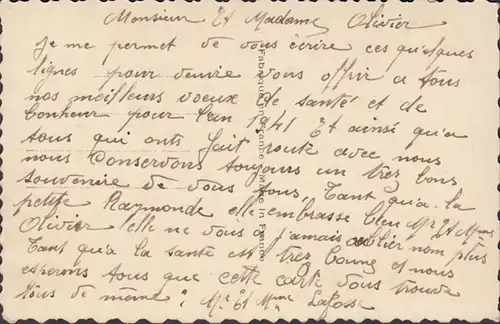 Monsieur Et Madame Olivier
Je me permet de vous écrire ces quelques
lignes pour venire vous offrir a tous
nos meilleurs voeux de santé et de
bonheur pour l'an 1941 Et ainsi qu'a
tous qui onts fait route avec nous
nous conservons toujours un trez bons
souvenire de vous tous, Tant qu'a la
petite Raymonde elle embrasse bien Mr Et Mme
Olivier elle ne vous a jamais oublier nom plus
Tant qu'a la santé est trez bonne et nous
esperons tous que cette carte vous trouve
tous de même. Mr Et Mme Lafosse
Fabrique Française Made in France